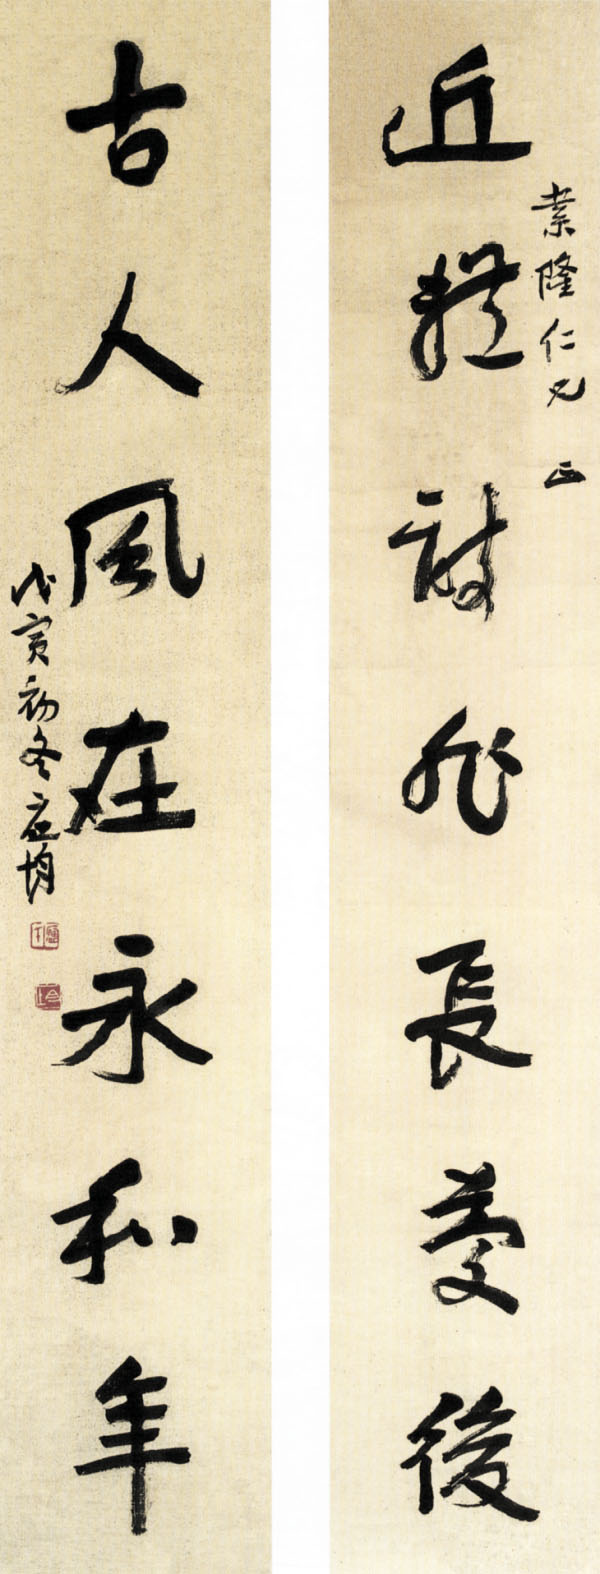 近體詩非長慶後
隆仁兄 正
古人風在永和年
戊寅初冬應均